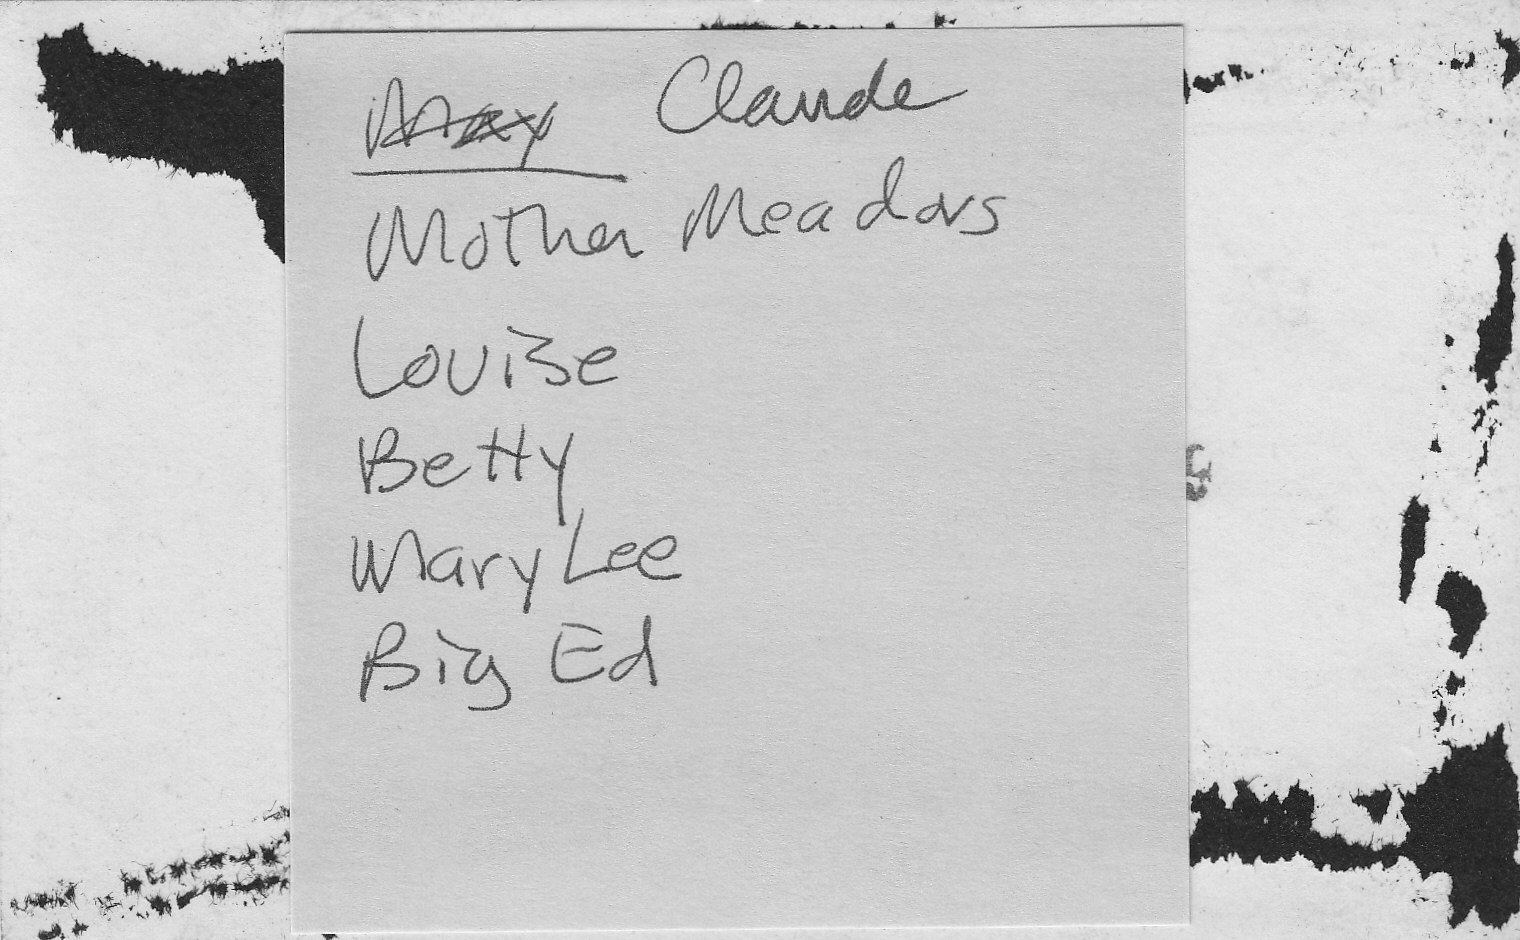 May Claude
Mother Meadors
Louise
Betty
Mary Lee
Big Ed